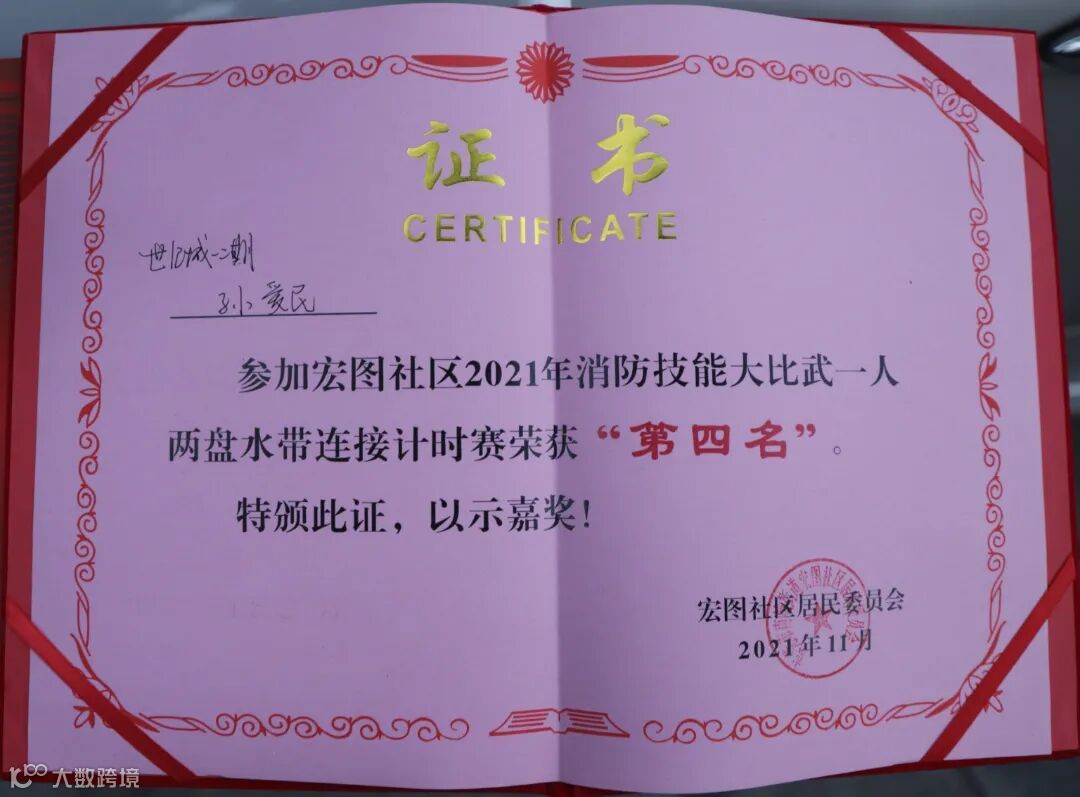 证书
CERTIFICATE
世纪城二期
孙爱民
参加宏图社区2021年消防技能大比武一人
两盘水带连接计时赛荣获“第四名”。
特颁此证，以示嘉奖！
宏图社区居民委员会
2021年11月
大数跨境